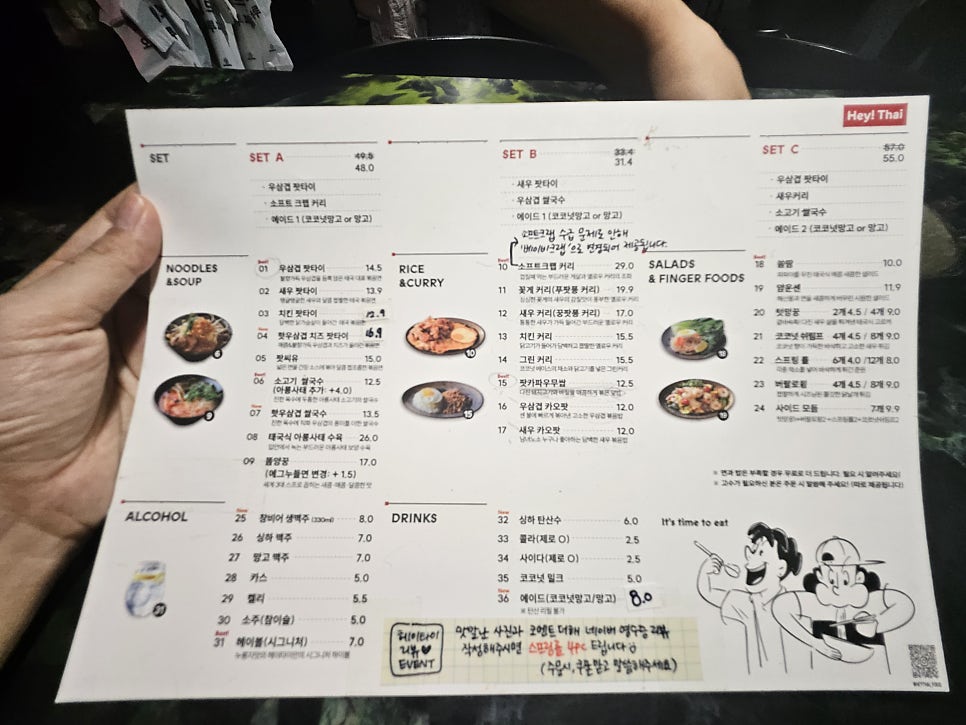 Hey! Thai
SET
SET A 49.5
48.0
· 우삼겹 팟타이
· 소프트 크랩 커리
· 에이드 1 (코코넛망고 or 망고)
SET B 33.4
31.4
· 새우 팟타이
· 우삼겹 쌀국수
· 에이드 1 (코코넛망고 or 망고)
SET C 57.0
55.0
· 우삼겹 팟타이
· 새우커리
· 소고기 쌀국수
· 에이드 2 (코코넛망고 or 망고)
소프트크랩 수급 문제로 인해
'베이비크랩'으로 변경되어 제공됩니다.
NOODLES
&SOUP
Best!
01 우삼겹 팟타이 14.5
02 새우 팟타이 13.9
03 치킨 팟타이 12.9
04 핫우삼겹 치즈 팟타이 16.9
05 팟씨유 15.0
Best!
06 소고기 쌀국수 12.5
(아롱사태 추가: +4.0)
New
07 핫우삼겹 쌀국수 13.5
08 태국식 아롱사태 수육 26.0
09 똠얌꿍 17.0
(에그누들면 변경: + 1.5)
6
9
RICE
&CURRY
Best!
10 소프트크랩 커리 29.0
11 꽃게 커리(푸팟퐁 커리) 19.9
12 새우 커리(꿍팟퐁 커리) 17.0
13 치킨 커리 15.5
14 그린 커리 15.5
15 팟카파우무쌉 12.5
16 우삼겹 카오팟 12.0
17 새우 카오팟 12.0
10
15
SALADS
& FINGER FOODS
Best!
18 쏨땀 10.0
19 얌운센 11.9
20 텃망꿍 2개 4.5 / 4개 9.0
21 코코넛 쉬림프 4개 4.5 / 8개 9.0
22 스프링 롤 6개 4.0 /12개 8.0
23 버팔로윙 4개 4.5 / 8개 9.0
24 사이드 모듬 7개 9.9
18
19
※ 면과 밥은 부족할 경우 무료로 더 드립니다. 필요 시 말해주세요!
※ 고수가 필요하신 분은 주문 시 말씀해 주세요! (따로 제공됩니다)
ALCOHOL
New
25 창비어 생맥주 (330ml) 8.0
26 싱하 맥주 7.0
27 망고 맥주 7.0
28 카스 5.0
29 켈리 5.5
30 소주(참이슬) 5.0
Best!
31 헤이볼(시그니처) 7.0
31
DRINKS
New
32 싱하 탄산수 6.0
33 콜라(제로 O) 2.5
34 사이다(제로 O) 2.5
35 코코넛 밀크 5.0
New
36 에이드(코코넛망고/망고) 8.0
※ 탄산 리필 불가
It's time to eat
헤이타이
리뷰♥
EVENT
맛깔난 사진과 코멘트 더해 네이버 영수증 리뷰
작성해주시면 스프링롤 4pc 드립니다
(주문시, 쿠폰 받고 말씀해주세요)